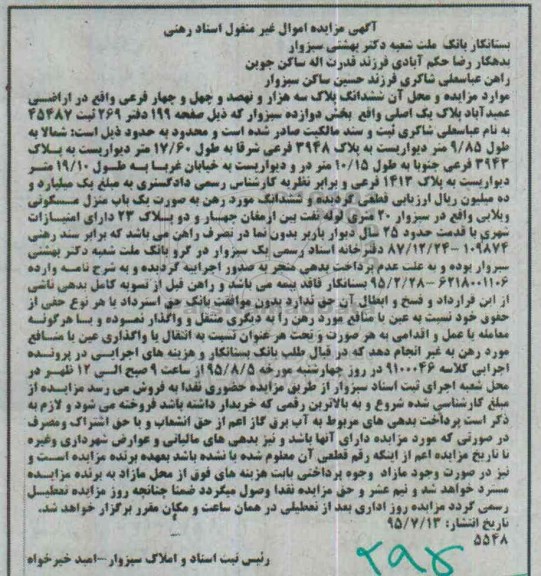 آگهی مزایده اموال غیر منقول اسناد رهنی
بستانکار بانک ملت شعبه دکتر بهشتی سبزوار
بدهکار رضا حکم آبادی فرزند قدرت اله ساکن جوین
راهن عباسعلی شاکری فرزند حسین ساکن سبزوار
موارد مزایده و محل آن ششدانگ پلاک سه هزار و نهصد و چهل و چهار فرعی واقع در اراضی
عمیدآباد پلاک یک اصلی واقع بخش دوازده سبزوار که ذیل صفحه ۱۹۹ دفتر ۲۶۹ ثبت ۴۵۴۸۷
به نام عباسعلی شاکری ثبت و سند مالکیت صادر شده است و محدود به حدود ذیل است: شمالا به
طول ۹/۸۵ متر دیواریست به پلاک ۳۹۴۸ فرعی شرقا به طول ۱۷/۶۰ متر دیواریست به پلاک
۳۹۴۳ فرعی جنوبا به طول ۱۰/۱۵ متر در و دیواریست به خیابان غربا به طول ۱۹/۱۰ متر
دیواریست به پلاک ۱۴۱۳ فرعی و برابر نظریه کارشناس رسمی دادگستری به مبلغ یک میلیارد و
ده میلیون ریال ارزیابی قطعی گردیده و ششدانگ مورد رهن به صورت یک باب منزل مسکونی
ویلایی واقع در سبزوار ۲۰ متری لوله نفت بین ارمغان چهار و دو پلاک ۲۳ دارای امتیازات
شهری با قدمت حدود ۲۵ سال دیوار باربر بدون نما در تصرف راهن می باشد که برابر سند رهنی
۱۰۹۸۷۴ -۸۷/۱۲/۲۴ دفترخانه اسناد رسمی یک سبزوار در گرو بانک ملت شعبه دکتر بهشتی
سبزوار بوده و به علت عدم پرداخت بدهی منجر به صدور اجراییه گردیده و به شرح نامه وارده
۶۲۱۸۰۰۱۱۰۶ -۹۵/۲/۲۸ بستانکار فاقد بیمه می باشد و راهن قبل از تسویه کامل بدهی ناشی
از این قرارداد و فسخ و ابطال آن حق ندارد بدون موافقت بانک حق استرداد یا هر نوع حقی از
حقوق خود نسبت به عین یا منافع مورد رهن را به دیگری منتقل و واگذار نموده و یا هرگونه
معامله یا عمل و اقدامی به هر صورت و تحت هر عنوان نسبت به انتقال یا واگذاری عین یا منافع
مورد رهن به غیر انجام دهد که در قبال طلب بانک بستانکار و هزینه های اجرایی در پرونده
اجرایی کلاسه ۹۱۰۰۰۴۶ در روز چهارشنبه مورخه ۹۵/۸/۵ از ساعت ۹ صبح الی ۱۲ ظهر در
محل شعبه اجرای ثبت اسناد سبزوار از طریق مزایده حضوری نقدا به فروش می رسد مزایده از
مبلغ کارشناسی شده شروع و به بالاترین رقمی که خریدار داشته باشد فروخته می شود و لازم به
ذکر است پرداخت بدهی های مربوط به آب برق گاز اعم از حق انشعاب و یا حق اشتراک ومصرف
در صورتی که مورد مزایده دارای آنها باشد و نیز بدهی های مالیاتی و عوارض شهرداری وغیره
تا تاریخ مزایده اعم از اینکه رقم قطعی آن معلوم شده یا نشده باشد بعهده برنده مزایده است و
نیز در صورت وجود مازاد وجوه پرداختی بابت هزینه های فوق از محل مازاد به برنده مزایده
مسترد خواهد شد و نیم عشر و حق مزایده نقدا وصول میگردد ضمنا چنانچه روز مزایده تعطیل
رسمی گردد مزایده روز اداری بعد از تعطیلی در همان ساعت و مکان مقرر برگزار خواهد شد.
تاریخ انتشار: ۹۵/۷/۱۳
۵۵۴۸
رئیس ثبت اسناد و املاک سبزوار-امید خیرخواه